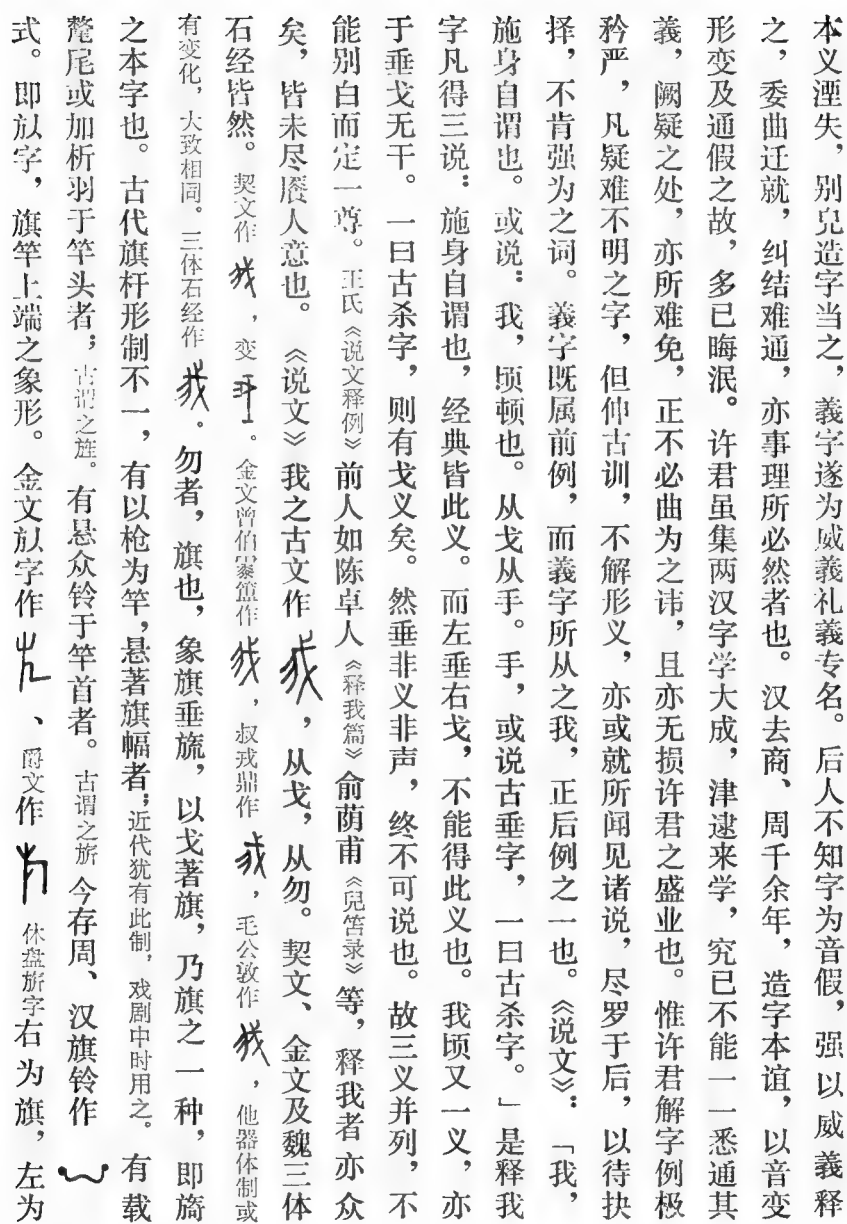 本义湮失，别见造字当之，義字遂为威義礼義专名。后人不知字为音假，强以威義释
之，委曲迁就，纠结难通，亦事理所必然者也。汉去商、周千余年，造字本谊，以音变
形变及通假之故，多已晦泯。许君虽集两汉字学大成，津逮来学，究已不能一一悉通其
義，阙疑之处，亦所难免，正不必曲为之讳，且亦无损许君之盛业也。惟许君解字例极
矜严，凡疑难不明之字，但伸古训，不解形义，亦或就所闻见诸说，尽罗于后，以待抉
择，不肯强为之词。義字既属前例，而義字所从之我，正后例之一也。《说文》：「我，
施身自谓也。或说：我，顷顿也。从戈从手。手，或说古垂字，一曰古杀字。」是释我
字凡得三说：施身自谓也，经典皆此义。而左垂右戈，不能得此义也。我顷又一义，亦
于垂戈无干。一曰古杀字，则有戈义矣。然垂非义非声，终不可说也。故三义并列，不
能别白而定一尊。王氏《说文释例》前人如陈卓人《释我篇》俞荫甫《兒笘录》等，释我者亦众
矣，皆未尽餍人意也。《说文》我之古文作，从戈，从勿。契文、金文及魏三体
石经皆然。契文作，变。金文曾伯霥簠作，叔戎鼎作，毛公敦作，他器体制或
有变化，大致相同。三体石经作。勿者，旗也，象旗垂旒，以戈著旗，乃旗之一种，即旖
之本字也。古代旗杆形制不一，有以枪为竿，悬著旗幅者；近代犹有此制，戏剧中时用之。有载
氂尾或加析羽于竿头者；古谓之旌。有悬众铃于竿首者。古谓之旂今存周、汉旗铃作
式。即㫃字，旗竿上端之象形。金文㫃字作、爵文作休盘旂字右为旗，左为